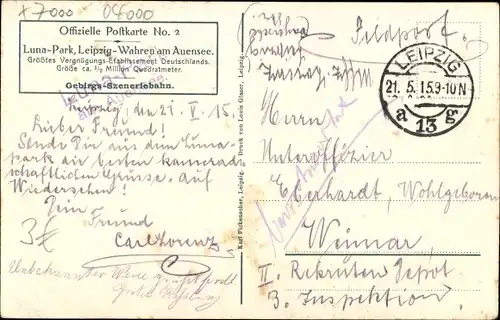 x7000 04000
Offizielle Postkarte No. 2
Luna-Park, Leipzig-Wahren am Auensee.
Größtes Vergnügungs-Etablissement Deutschlands.
Größe ca. ½ Million Quadratmeter.
Gebirgs-Szeneriebahn.
Leipzig, den 21. V. 15.
Lieber Freund!
Sende Dir aus dem Luna-
park die besten kamerad-
schaftlichen Grüsse. Auf
Wiedersehen!
Dein
Freund
Carl Lorenz
3€
Unbekannter Weise grüßt
Karl Pickenhahn, Leipzig. Druck von Louis Glaser, Leipzig.
Feldpost.
LEIPZIG
21. 5. 15. 9-10 N
a 13 g
Herrn
Unteroffizier
Eberhardt, Wohlgeboren
Weimar
II. Rekruten Depot
3. Inspektion